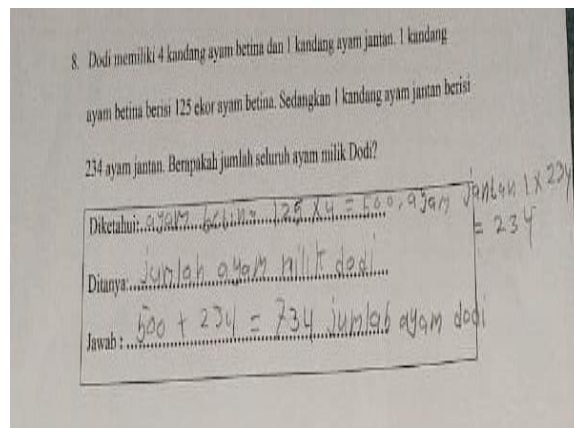 8. Dodi memiliki 4 kandang ayam betina dan 1 kandang ayam jantan. 1 kandang
ayam betina berisi 125 ekor ayam betina. Sedangkan 1 kandang ayam jantan berisi
234 ayam jantan. Berapakah jumlah seluruh ayam milik Dodi?
Diketahui: ayam betina 125 x 4 = 500, ayam jantan 1 x 234
= 234
Ditanya: jumlah ayam milik dodi
Jawab : 500 + 234 = 734 jumlah ayam dodi